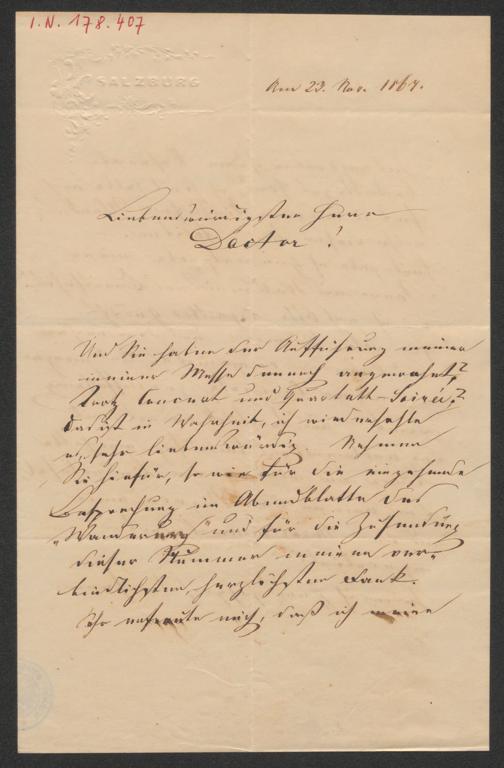 I.N. 178.407
SALZBURG
Am 23. Nov. 1867.
Liebenswürdigster Herr
Doctor!
Und Sie haben der Aufführung meiner
Messe dennoch angewohnt,
trotz Concert und Quartett-Soirée,?
das ist in Wahrheit, ich wiederhohle
es, sehr liebenswürdig. Nehmen
Sie hiefür, so wie für die eingehende
Besprechung im Abendblatte des
„Wanderer" und für die Zusendung
dieser Nummer meinen ver-
bindlichsten, herzlichsten Dank.
Ihr erfreute mich, daß ich meine